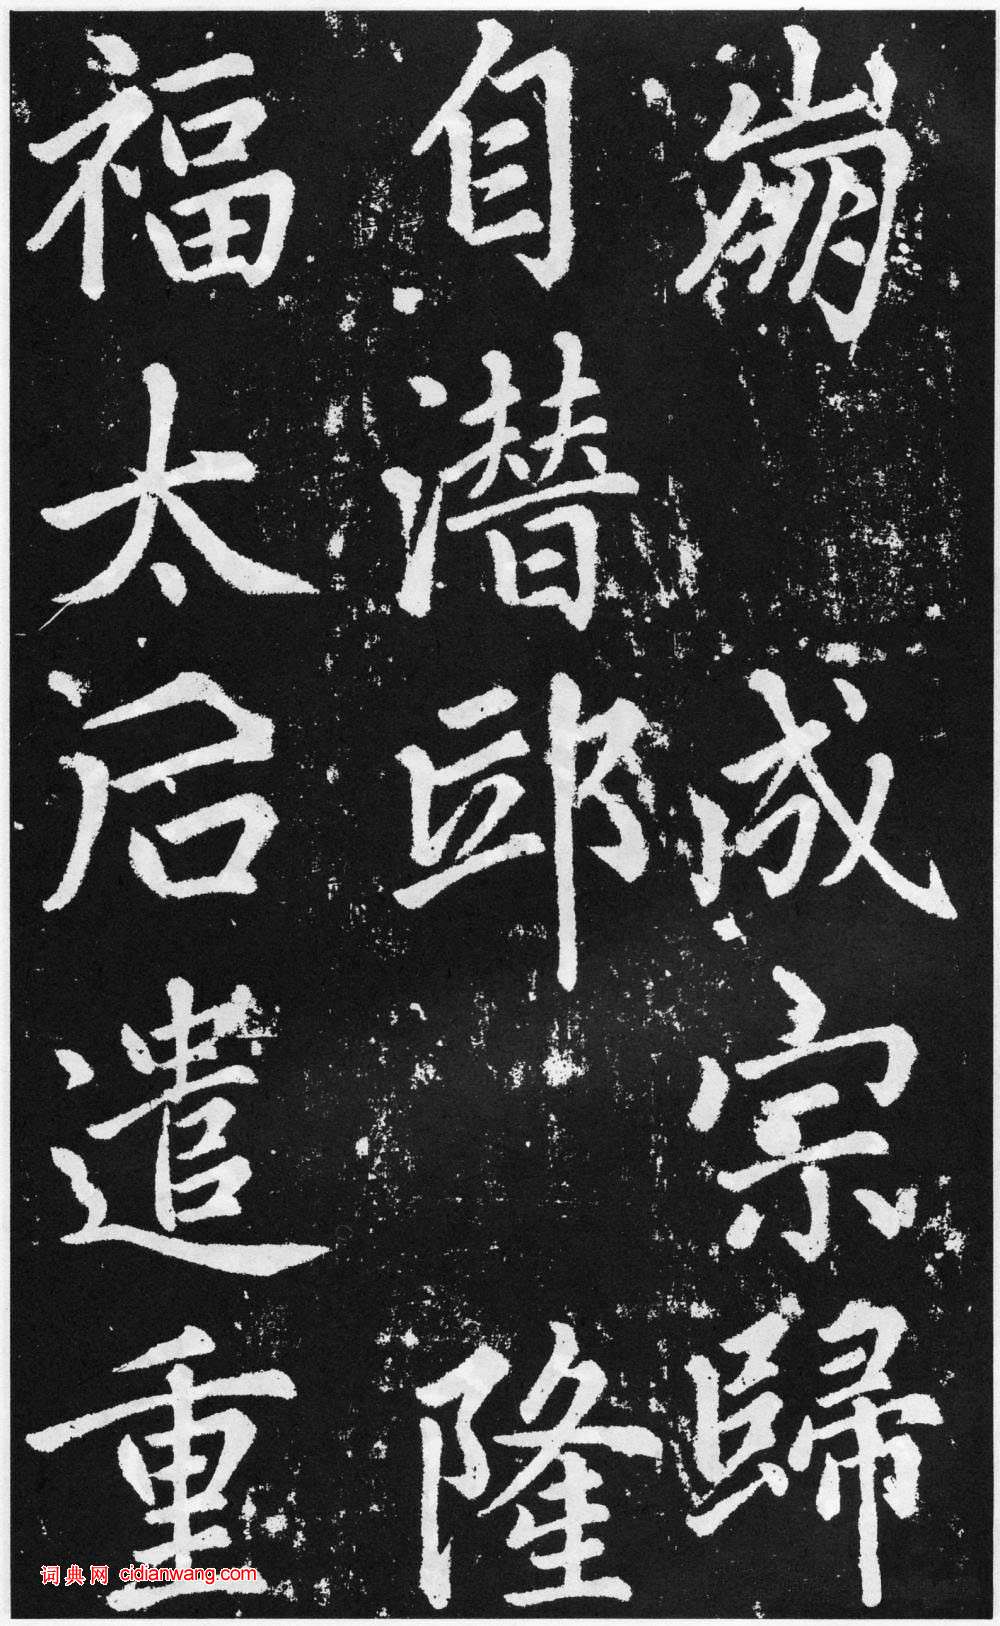 崩成宗歸
自潜邸隆
福太后遣
重
词典网 cidianwang.com